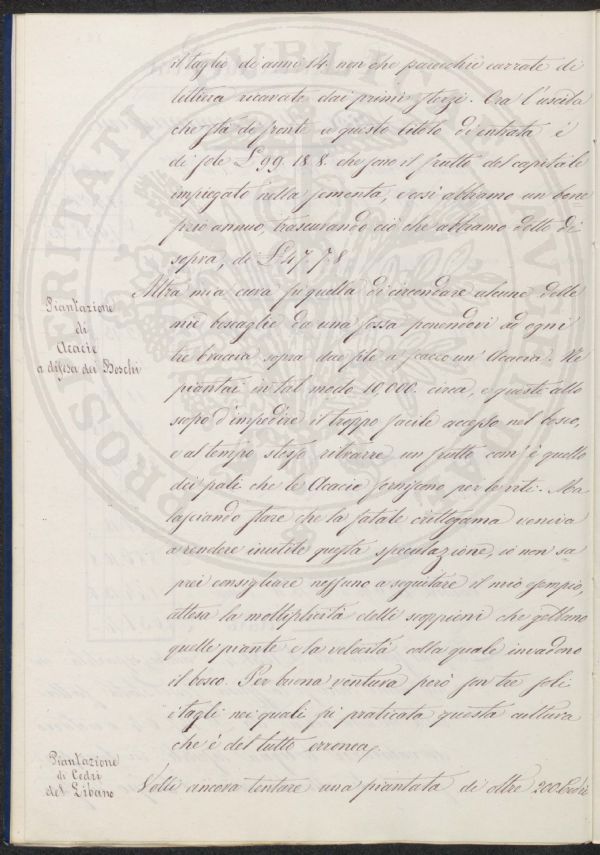 il taglio di anni 14. non che parecchie carrate di
lettiera ricavate dai primi sterzi. Ora l'uscita
che stà di fronte a questo titolo di entrata è
di sole £ 99. 18. 8. che sono il frutto del capitale
impiegato nella sementa, e così abbiamo un bene=
fizio annuo, trascurando ciò che abbiamo detto di
sopra, di £ 47. 7. 8
Piantazione
di
Acacie
a difesa dei Boschi
Altra mia cura fu quella di circondare alcune delle
mie boscaglie da una fossa ponendovi ad ogni
tre braccia sopra due file a scacco un'Acacia. Ne
piantai in tal modo 10,000. circa, e queste allo
scopo d'impedire il troppo facile accesso nel bosco,
e al tempo stesso ritrarre un frutto com'è quello
dei pali che le Acacie forniscono per le viti. Ma
lasciando stare che la fatale crittogama veniva
a rendere inutile questa speculazione, io non sa=
prei consigliare nessuno a seguitare il mio esempio,
attesa la moltiplicità delle scoppieni che gettano
quelle piante e la velocità colla quale invadono
il bosco. Per buona ventura però son tre soli
i tagli nei quali fu praticata questa cultura
che è del tutto erronea.
Piantazione
di Cedri
del Libano
Volli ancora tentare una piantata di oltre 200. Cedri
PROSPERITATI PUBLICAE AUGENDAE